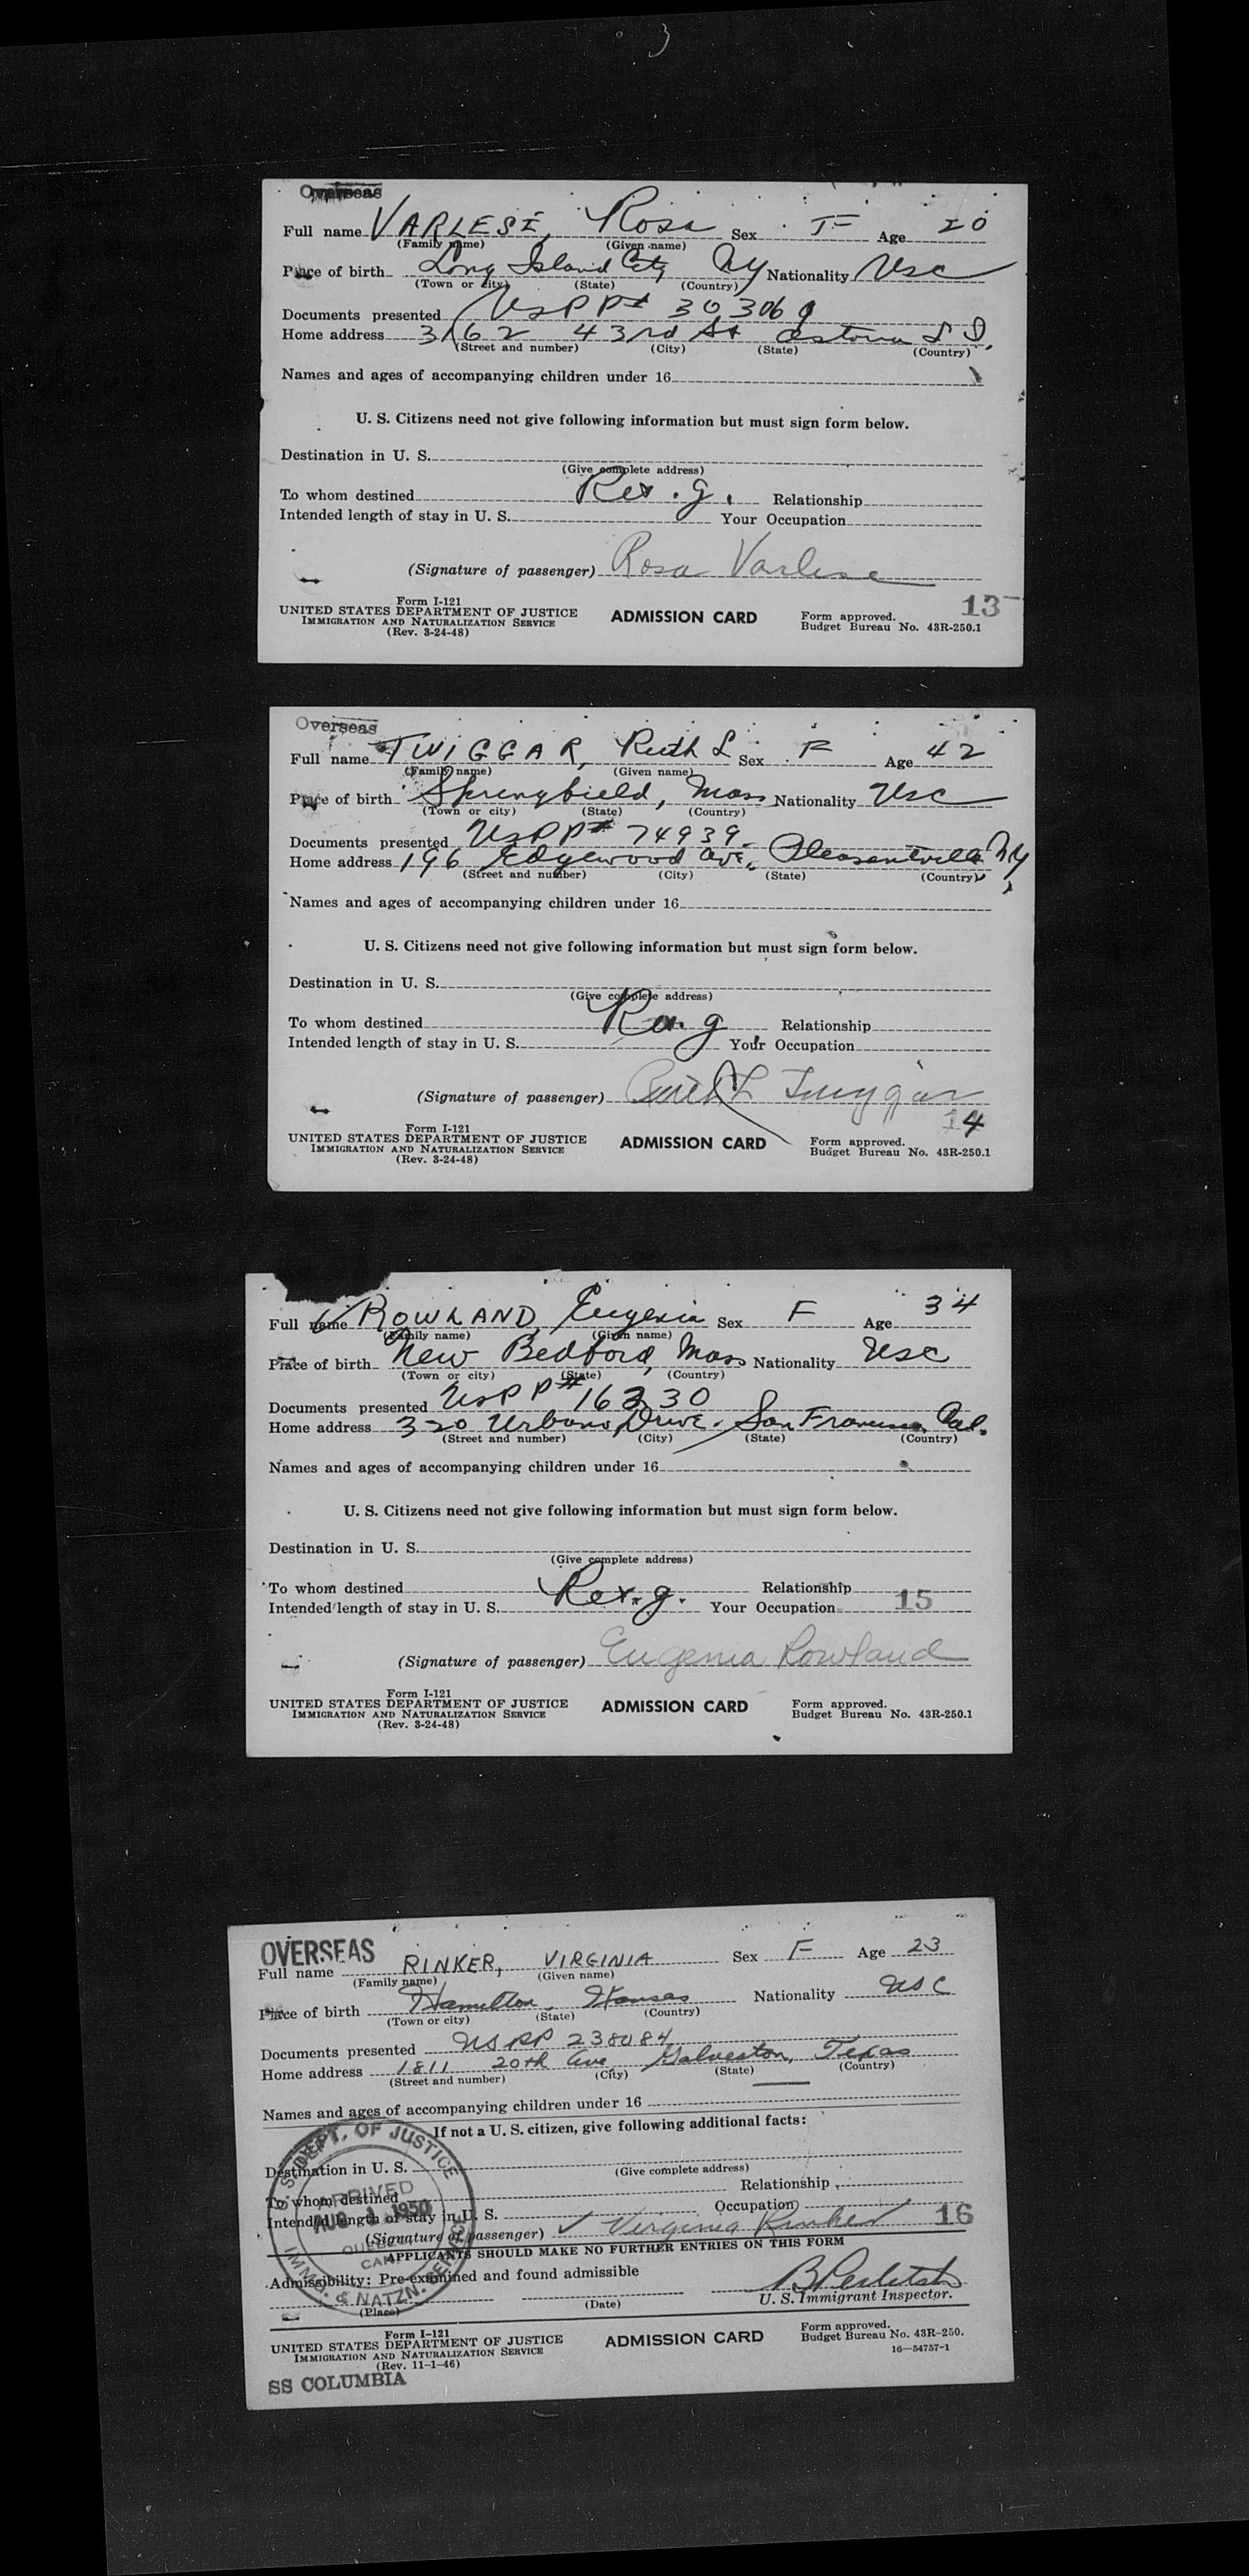 Overseas
Full name VARLESE, Rosa Sex F Age 20
(Family name) (Given name)
Place of birth Long Island City NY Nationality USC
(Town or city) (State) (Country)
Documents presented USPP# 303069
Home address 3162 43rd St Astoria L I,
(Street and number) (City) (State) (Country)
Names and ages of accompanying children under 16
U. S. Citizens need not give following information but must sign form below.
Destination in U. S.
(Give complete address)
To whom destined Rex. g. Relationship
Intended length of stay in U. S. Your Occupation
(Signature of passenger) Rosa Varlese
13
Form I-121
UNITED STATES DEPARTMENT OF JUSTICE ADMISSION CARD Form approved.
IMMIGRATION AND NATURALIZATION SERVICE Budget Bureau No. 43R-250.1
(Rev. 3-24-48)
Overseas
Full name TWIGGAR, Ruth L Sex F Age 42
(Family name) (Given name)
Place of birth Springfield, Mass Nationality USC
(Town or city) (State) (Country)
Documents presented USPP# 74939
Home address 196 Edgewood Ave, Pleasantville NY
(Street and number) (City) (State) (Country)
Names and ages of accompanying children under 16
U. S. Citizens need not give following information but must sign form below.
Destination in U. S.
(Give complete address)
To whom destined Relationship
Intended length of stay in U. S. Your Occupation
(Signature of passenger) Ruth L Twiggar
14
Form I-121
UNITED STATES DEPARTMENT OF JUSTICE ADMISSION CARD Form approved.
IMMIGRATION AND NATURALIZATION SERVICE Budget Bureau No. 43R-250.1
(Rev. 3-24-48)
Full name ROWLAND, Eugenia Sex F Age 34
(Family name) (Given name)
Place of birth New Bedford, Mass Nationality USC
(Town or city) (State) (Country)
Documents presented USPP# 163330
Home address 320 Urbano Drive, San Francisco Cal.
(Street and number) (City) (State) (Country)
Names and ages of accompanying children under 16
U. S. Citizens need not give following information but must sign form below.
Destination in U. S.
(Give complete address)
To whom destined Rex. g. Relationship
Intended length of stay in U. S. Your Occupation 15
(Signature of passenger) Eugenia Rowland
Form I-121
UNITED STATES DEPARTMENT OF JUSTICE ADMISSION CARD Form approved.
IMMIGRATION AND NATURALIZATION SERVICE Budget Bureau No. 43R-250.1
(Rev. 3-24-48)
OVERSEAS
Full name RINKER, VIRGINIA Sex F Age 23
(Family name) (Given name)
Place of birth Hamilton, Kansas Nationality USC
(Town or city) (State) (Country)
Documents presented USPP 238084
Home address 1811 20th Ave Galveston, Texas
(Street and number) (City) (State) (Country)
Names and ages of accompanying children under 16
If not a U. S. citizen, give following additional facts:
Destination in U. S.
(Give complete address)
To whom destined Relationship
Intended length of stay in U. S. Occupation
(Signature of passenger) Virginia Rinker 16
APPLICANTS SHOULD MAKE NO FURTHER ENTRIES ON THIS FORM
Admissibility: Pre-examined and found admissible
U. S. Immigrant Inspector.
(Place) (Date)
U. S. DEPT. OF JUSTICE
ARRIVED
AUG 1 1950
QUEBEC
CAN.
IMMG. & NATZN. SERVICE
Form I-121
UNITED STATES DEPARTMENT OF JUSTICE ADMISSION CARD Form approved.
IMMIGRATION AND NATURALIZATION SERVICE Budget Bureau No. 43R-250.
(Rev. 11-1-46) 16—54757-1
SS COLUMBIA